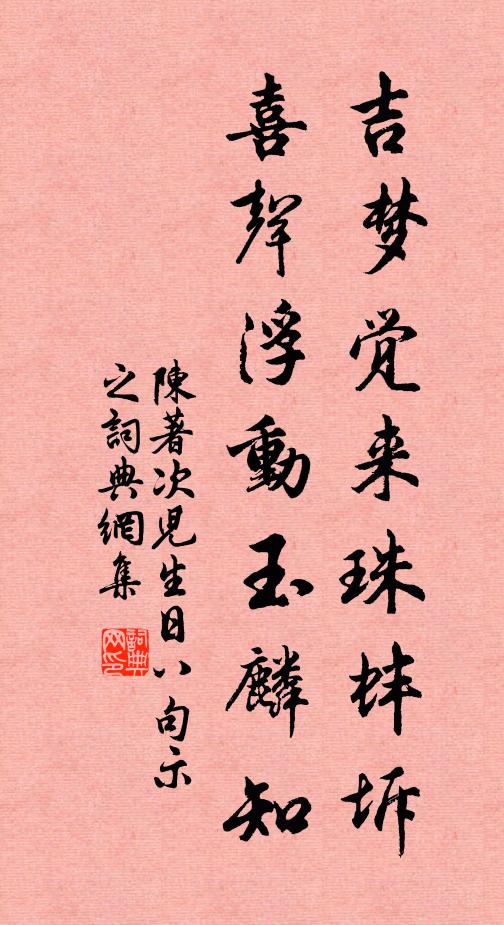 吉梦觉来珠蚌坼
喜聲浮動玉麟知
陳著次児生日八句示
之詞典網集
詞典网印